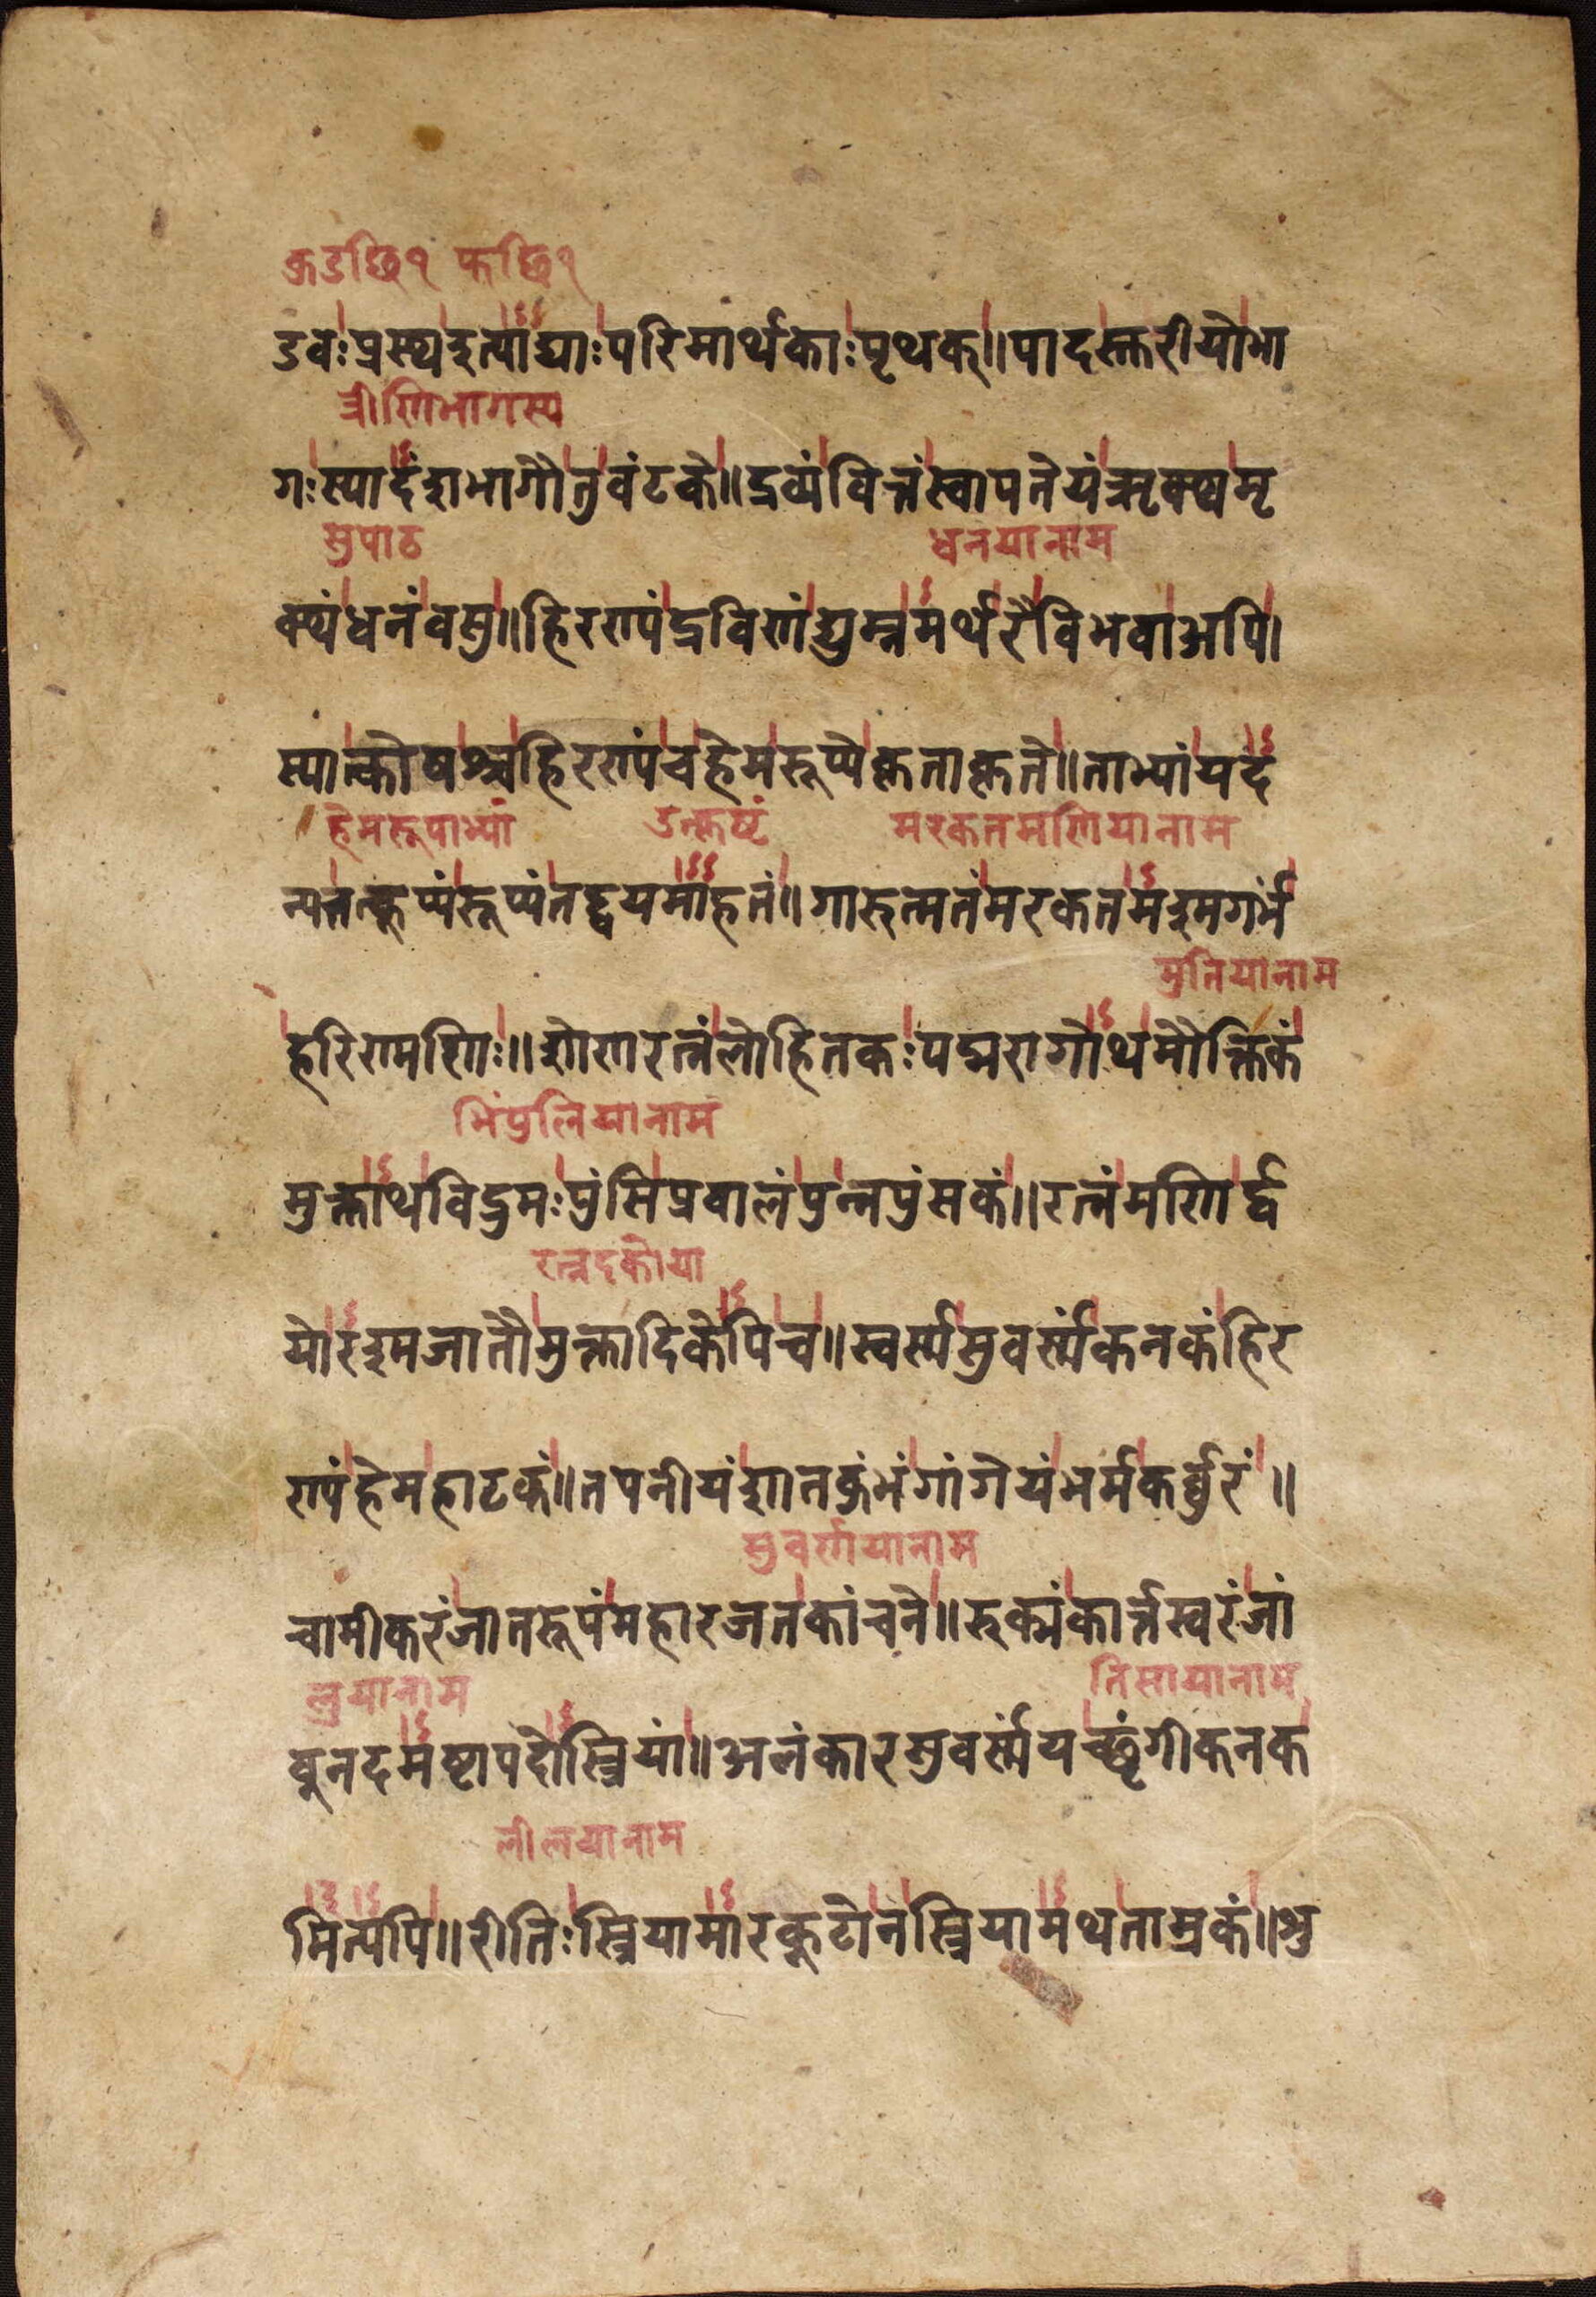 कुडछि१ फछि१
डवःप्रस्थइत्याद्याःपरिमार्थकाःपृथक्॥पादस्तुरीयोभा
त्रीणिभागस्य
गःस्यादंशभागौतुवंटके॥द्रव्यंवित्तंस्वापतेयंऋक्थमृ
सुपाठ धनयानाम
क्थंधनंवसु॥हिरण्यंद्रविणंद्युम्नमर्थरैविभवाअपि।
स्यात्कोषश्चहिरण्यंचहेमरूप्येकृताकृते॥ताभ्यांयद
हेमरूपाभ्यां उत्कृष्टं मरकतमणियानाम
न्यत्तत्कुप्यंरूप्यंतद्द्वयमाहतं॥गारुत्मतंमरकतमश्मगर्भं
मुतियानाम
हरिण्मणिः॥शोणरत्नंलोहितकःपद्मरागोथमौक्तिकं
भिंपुलियानाम
मुक्ताथविद्रुमःपुंसिप्रवालंपुन्नपुंसकं॥रत्नंमणिर्द्व
रत्नदकोया
योरश्मजातौमुक्तादिकेपिच॥स्वर्ण्णसुवर्ण्णंकनकंहिर
ण्यंहेमहाटकं॥तपनीयंशातकुंभंगांगेयंभर्मकर्बुरं॥
सुवर्णयानाम
चामीकरंजातरूपंमहारजतकांचने॥रुक्मंकार्त्तस्वरंजां
लुयानाम तिसायानाम
बूनदमष्टापदोस्त्रियां॥अलंकारसुवर्ण्णंयच्छृंगीकनक
लीलयानाम
मित्यपि॥रीतिःस्त्रियामारकूटोनस्त्रियामथताम्रकं॥शु